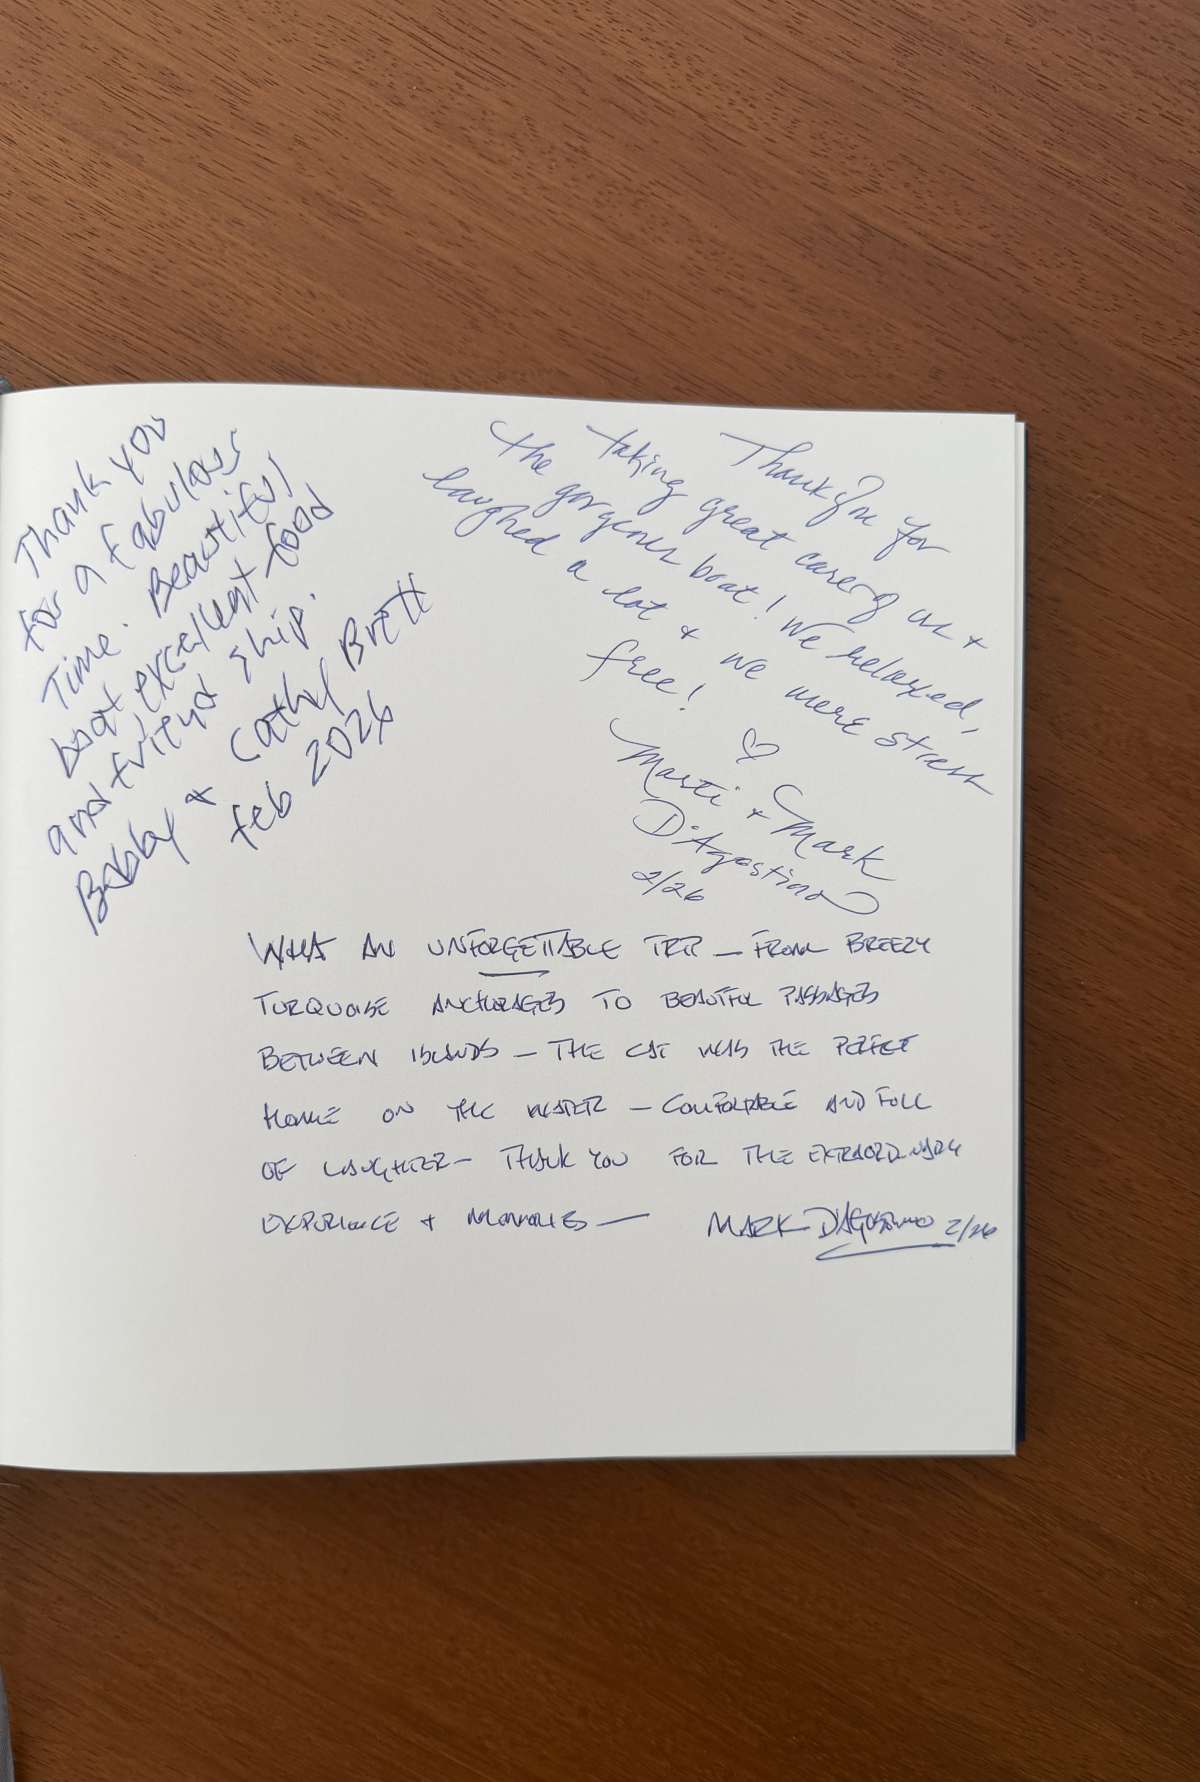 Thank you
for a fabulous
Time. Beautiful
boat, excellent food
and friend ship.
Bobby & Cathy Brett
feb 2026
Thank you for
taking great care of us &
the gorgeous boat! We relaxed,
laughed a lot & we were stress
free! ♡
Marti & Mark
D'Agostino
2/26
WHAT AN UNFORGETTABLE TRIP — FROM BREEZY
TURQUOISE ANCHORAGES TO BEAUTIFUL PASSAGES
BETWEEN ISLANDS — THE CAT WAS THE PERFECT
HOME ON THE WATER — COMFORTABLE AND FULL
OF LAUGHTER — THANK YOU FOR THE EXTRAORDINARY
EXPERIENCE + MEMORIES — MARK D'AGOSTINO 2/26